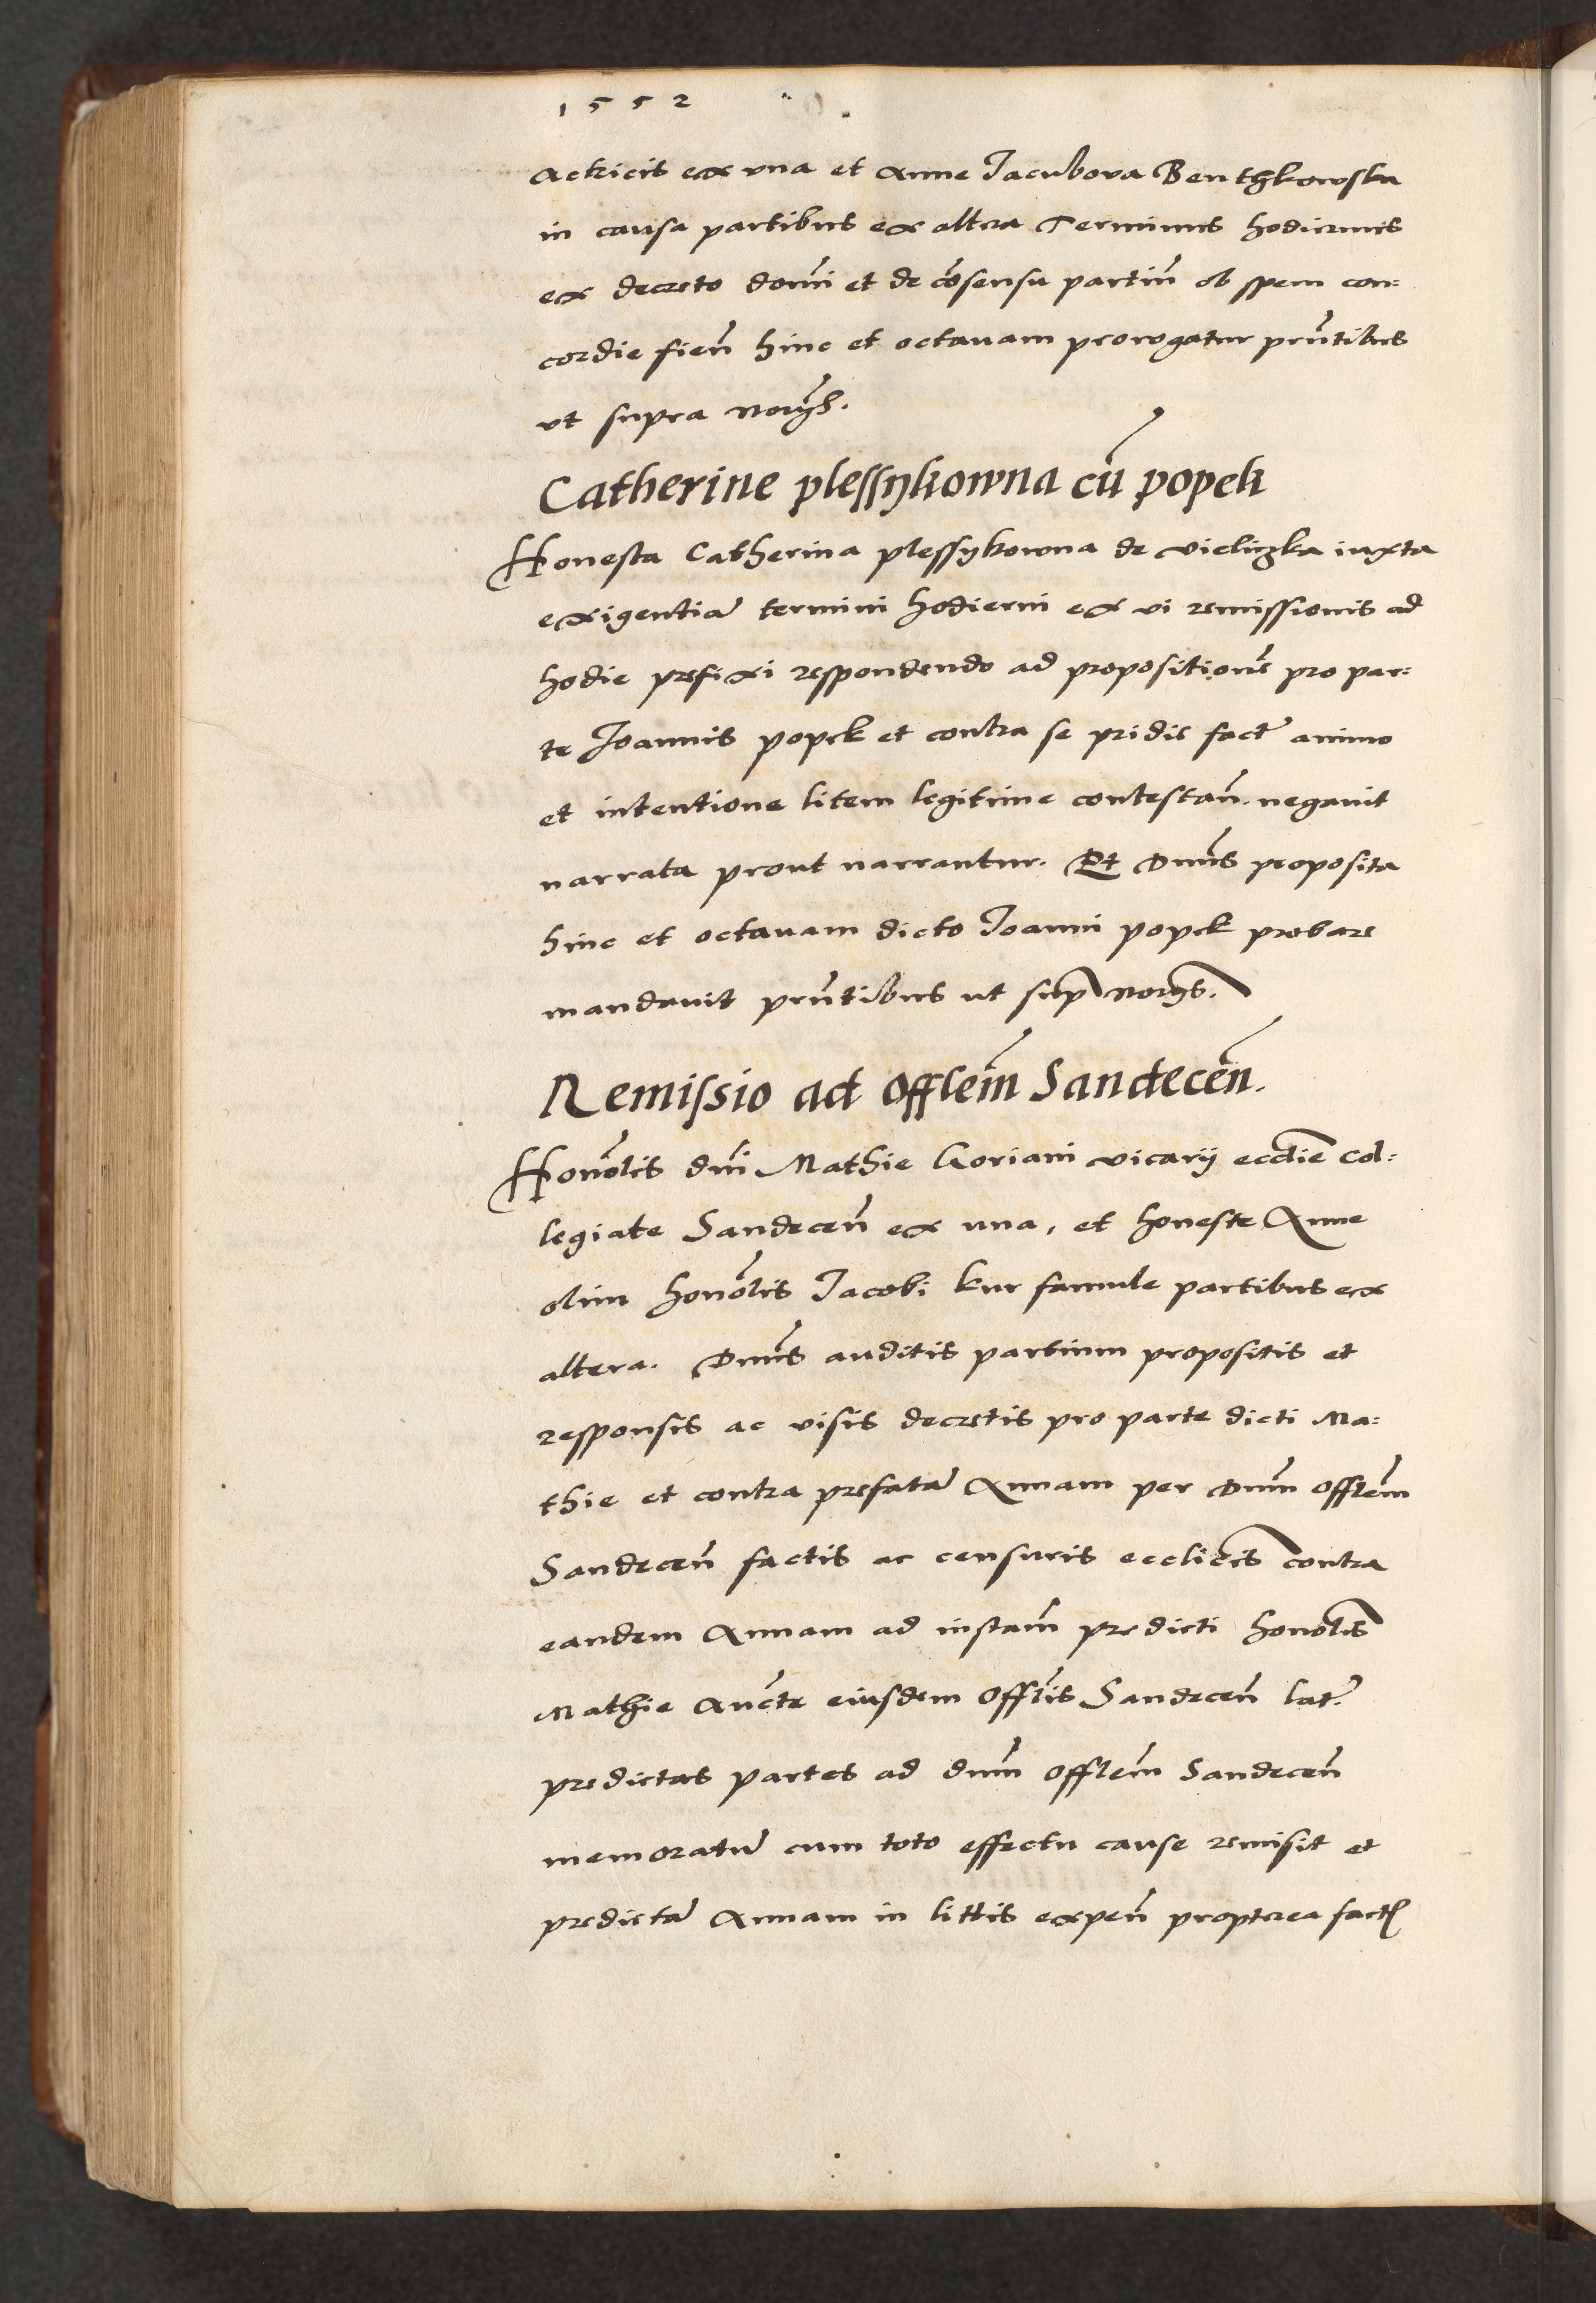 1552
actricis ex vna et Anne Jacubova Benthkowska
in causa partibus ex altera Terminus hodiernus
ex decreto domi et de cōsensu partiū ob spem con:
cordie fien̄ hinc et octauam prorogatur prn̄tibus
vt supra
Catherine plessykowna cū popek
Honesta Catherina plessykowna de vieliczka iuxta
exigentiā termini hodierni ex vi remissionis ad
hodie prefixi respondendo ad propositionē pro par:
te Joannis popek et contra se pridie fact̄ animo
et intentione litem legitime contestan̄. negauit
narrata prout narrantur. Et Dnus̄ proposita
hinc et octauam dicto Joanni popek probare
mandauit prn̄tibus ut sup̄ norÿs.
Remissio ad Offlem̄ Sandecen̄.
Honōlis dn̄i Mathie Goriani vicarij eccl̄ie Col:
legiate Sandecen̄ ex una, et honeste Anne
olim honōlis Jacobi kur famule partibus ex
altera. Dnus̄ auditis partium propositis et
responsis ac visis decretis pro parte dicti Ma:
thie et contra prefatā Annam per Dnm̄ Offlem̄
Sandecen̄ factis ac censuris eccliēis contra
eandem Annam ad instam̄ predicti honōlis
Mathie Auct̄e eiusdem Offlīs Sandecen̄ lat̄
predictas partes ad dnm̄ Offlem̄ Sandecen̄
memoratū cum toto effectu cause remisit et
predictā Annam in littis expen̄ propterea fact̄